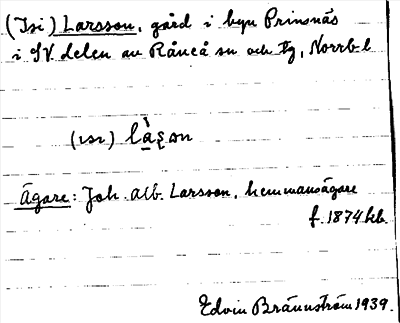 (Isi) Larsson, gård i byn Prinsnäs
i SV delen av Råneå sn och tg, Norrb. l
(ɪsɪ) là̱son
Ägare: Joh. Alb. Larsson, hemmansägare
f. 1874 hb.
Edvin Brännström 1939.